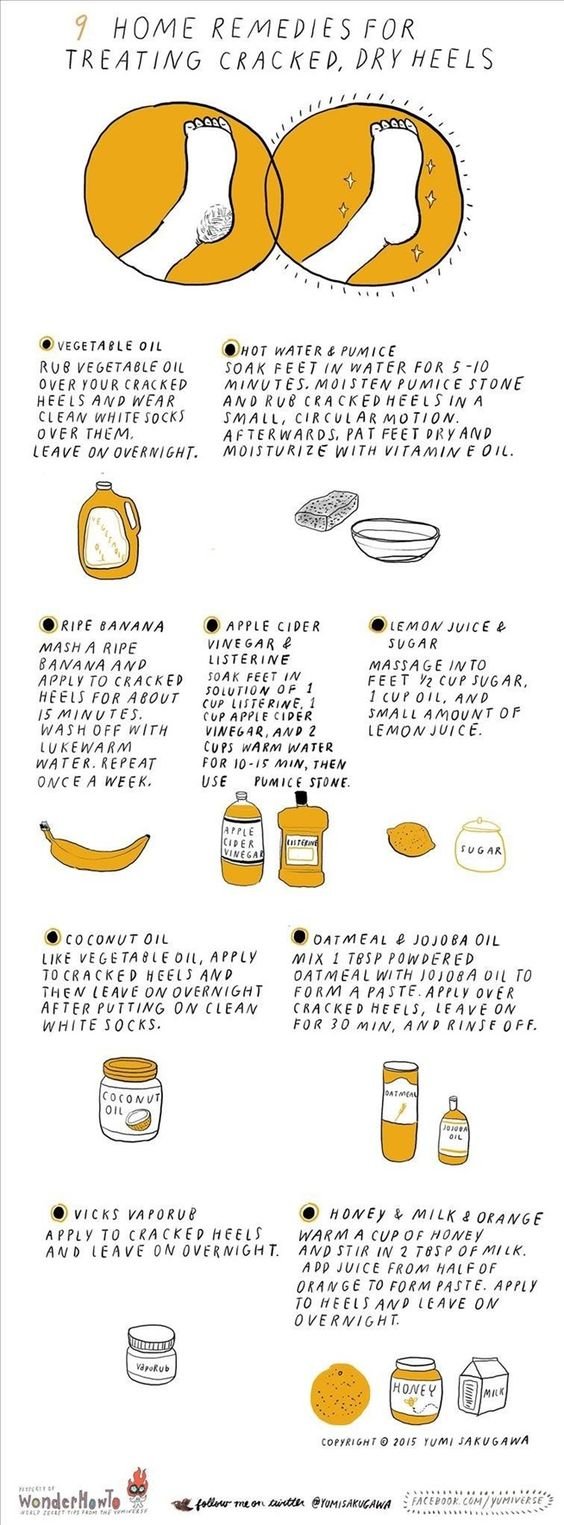 9 HOME REMEDIES FOR
TREATING CRACKED, DRY HEELS
VEGETABLE OIL
RUB VEGETABLE OIL
OVER YOUR CRACKED
HEELS AND WEAR
CLEAN WHITE SOCKS
OVER THEM.
LEAVE ON OVERNIGHT.
VEGETABLE
OIL
HOT WATER & PUMICE
SOAK FEET IN WATER FOR 5-10
MINUTES. MOISTEN PUMICE STONE
AND RUB CRACKED HEELS IN A
SMALL, CIRCULAR MOTION.
AFTERWARDS, PAT FEET DRY AND
MOISTURIZE WITH VITAMIN E OIL.
RIPE BANANA
MASH A RIPE
BANANA AND
APPLY TO CRACKED
HEELS FOR ABOUT
15 MINUTES.
WASH OFF WITH
LUKEWARM
WATER. REPEAT
ONCE A WEEK.
APPLE CIDER
VINEGAR &
LISTERINE
SOAK FEET IN
SOLUTION OF 1
CUP LISTERINE, 1
CUP APPLE CIDER
VINEGAR, AND 2
CUPS WARM WATER
FOR 10-15 MIN, THEN
USE PUMICE STONE.
APPLE
CIDER
VINEGAR
LISTERINE
LEMON JUICE &
SUGAR
MASSAGE INTO
FEET 1/2 CUP SUGAR,
1 CUP OIL, AND
SMALL AMOUNT OF
LEMON JUICE.
SUGAR
COCONUT OIL
LIKE VEGETABLE OIL, APPLY
TO CRACKED HEELS AND
THEN LEAVE ON OVERNIGHT
AFTER PUTTING ON CLEAN
WHITE SOCKS.
COCONUT
OIL
OATMEAL & JOJOBA OIL
MIX 1 TBSP POWDERED
OATMEAL WITH JOJOBA OIL TO
FORM A PASTE. APPLY OVER
CRACKED HEELS, LEAVE ON
FOR 30 MIN, AND RINSE OFF.
OATMEAL
JOJOBA
OIL
VICKS VAPORUB
APPLY TO CRACKED HEELS
AND LEAVE ON OVERNIGHT.
VapoRub
HONEY & MILK & ORANGE
WARM A CUP OF HONEY
AND STIR IN 2 TBSP OF MILK.
ADD JUICE FROM HALF OF
ORANGE TO FORM PASTE. APPLY
TO HEELS AND LEAVE ON
OVERNIGHT.
HONEY
MILK
COPYRIGHT © 2015 YUMI SAKUGAWA
PROPERTY OF
WonderHowTo
WORLD SECRET TIPS FROM THE YUMIVERSE
follow me on twitter @YUMISAKUGAWA
FACEBOOK.COM/YUMIVERSE